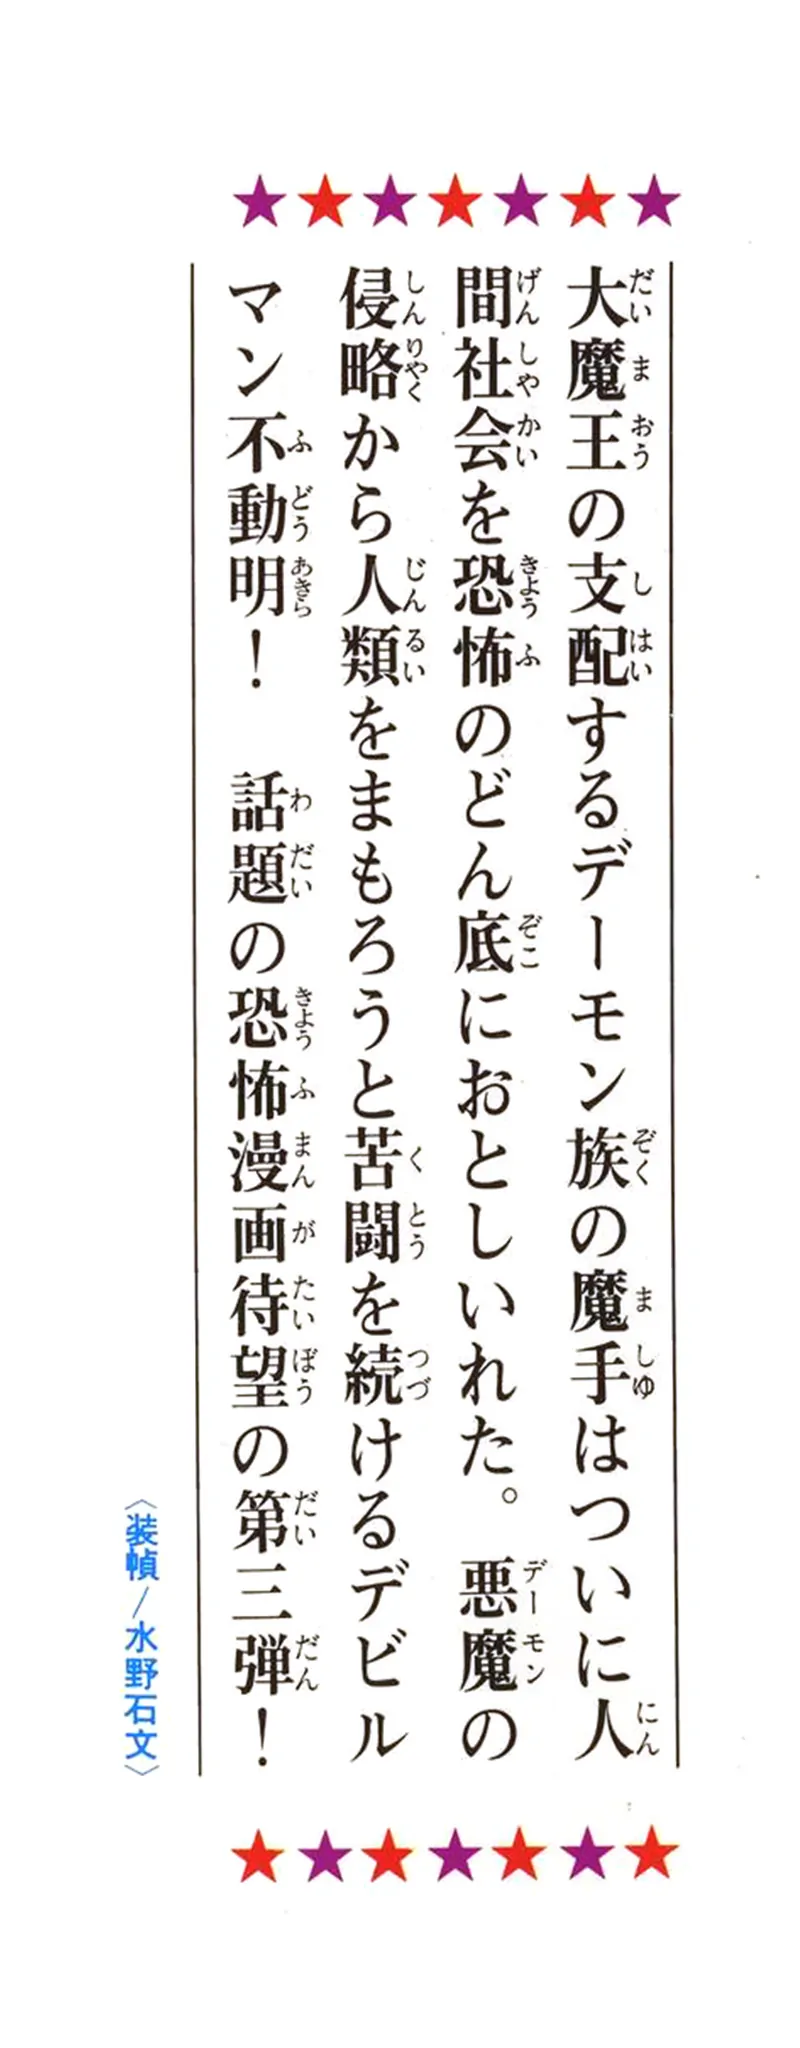 大魔王の支配するデーモン族の魔手はついに人
間社会を恐怖のどん底におとしいれた。悪魔の
侵略から人類をまもろうと苦闘を続けるデビル
マン不動明！　話題の恐怖漫画待望の第三弾！
〈装幀/水野石文〉